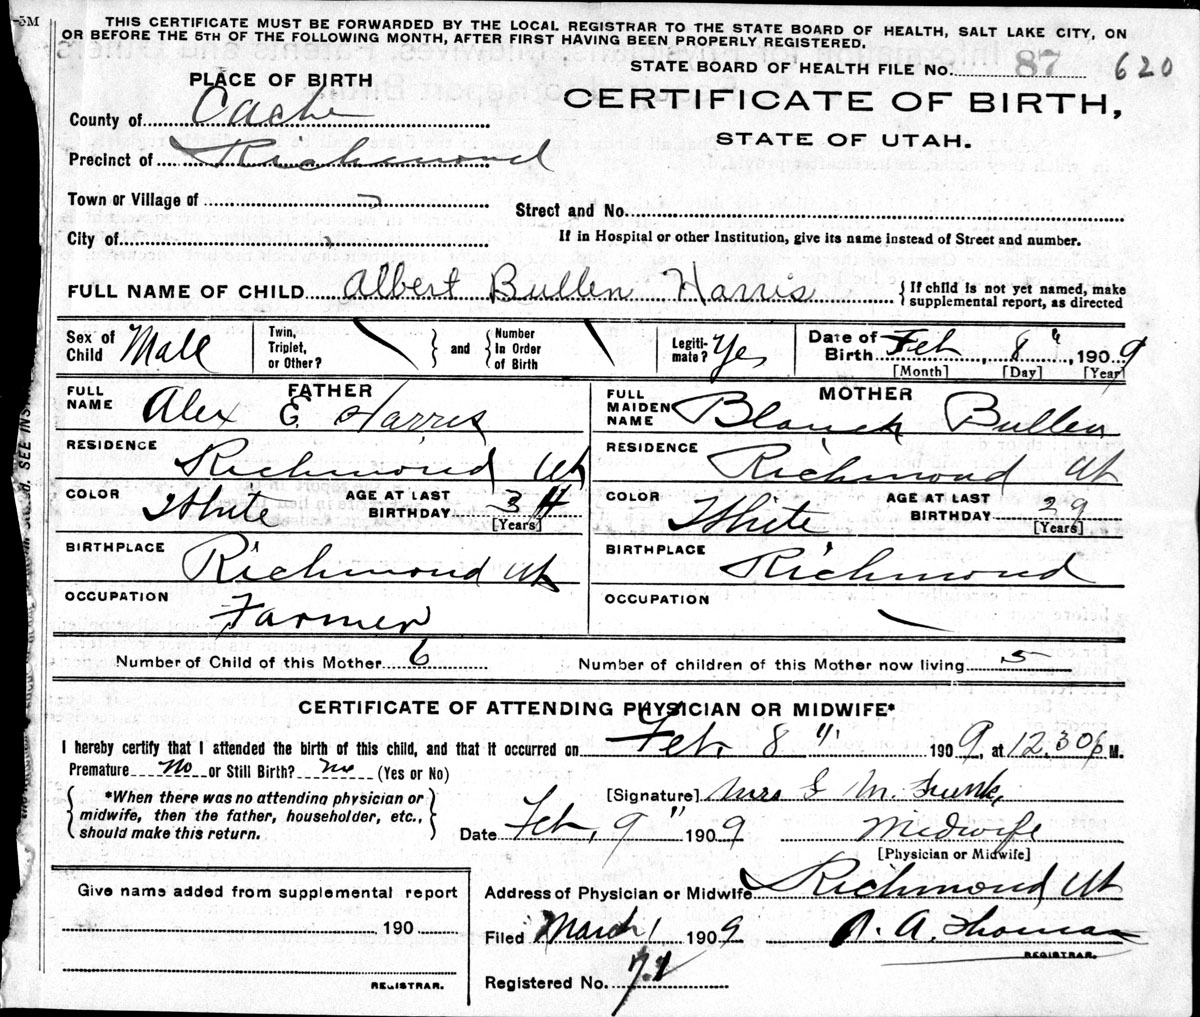 -5M
THIS CERTIFICATE MUST BE FORWARDED BY THE LOCAL REGISTRAR TO THE STATE BOARD OF HEALTH, SALT LAKE CITY, ON
OR BEFORE THE 5TH OF THE FOLLOWING MONTH, AFTER FIRST HAVING BEEN PROPERLY REGISTERED.
STATE BOARD OF HEALTH FILE No. 87 620
PLACE OF BIRTH
CERTIFICATE OF BIRTH,
STATE OF UTAH.
County of Cache
Precinct of Richmond
Town or Village of
Street and No.
City of
If in Hospital or other Institution, give its name instead of Street and number.
FULL NAME OF CHILD Albert Bullen Harris {If child is not yet named, make
supplemental report, as directed
Sex of Child Male
Twin, Triplet, or Other? } and { Number in Order of Birth
Legiti-mate? Yes
Date of Birth Feb, 8", 1909
[Month] [Day] [Year]
FATHER
FULL NAME Alex E Harris
MOTHER
FULL MAIDEN NAME Blanch Bullen
RESIDENCE Richmond Ut
RESIDENCE Richmond Ut
COLOR White AGE AT LAST BIRTHDAY 34 [Years]
COLOR White AGE AT LAST BIRTHDAY 29 [Years]
BIRTHPLACE Richmond Ut
BIRTHPLACE Richmond
OCCUPATION Farmer
OCCUPATION
Number of Child of this Mother 6 Number of children of this Mother now living 5
CERTIFICATE OF ATTENDING PHYSICIAN OR MIDWIFE*
I hereby certify that I attended the birth of this child, and that it occurred on Feb, 8" 1909, at 12.30 p M.
Premature no or Still Birth? no (Yes or No)
{*When there was no attending physician or
midwife, then the father, householder, etc.,
should make this return.}
[Signature] Mrs M. Funk,
Date Feb, 9" 1909 Midwife
[Physician or Midwife]
Give name added from supplemental report
190
REGISTRAR.
Address of Physician or Midwife Richmond Ut
Filed March 1 1909 A. Thomas
REGISTRAR.
Registered No. 71
SEE INS